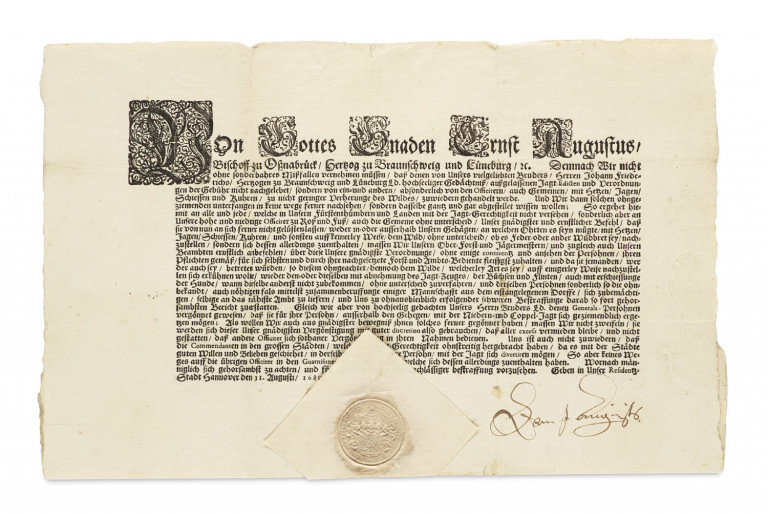 Von Gottes Gnaden Ernst Augustus/
Bischoff zu Oßnabrück/ Hertzog zu Braunschweig und Lüneburg/ ꝛc. Demnach Wir nicht
ohne sonderbahres Mißfallen vernehmen müssen/ daß denen von Unsers vielgeliebten Bruders/ Herren Johann Friede-
richs/ Hertzogen zu Braunschweig und Lüneburg Ld. hochseeliger Gedächtnüß/ außgelassenen Jagt-Edicten und Verordnun-
gen der Gebühr nicht nachgelebet/ sondern von ein- und andern/ absonderlich von den Officirern/ auch Gemeinen/ mit Hetzen/ Jagen/
Schiessen und Kuhren/ zu nicht geringer Verherunge des Wildes/ zuwiedern gehandelt werde. Und Wir dann solchen ohnge-
ziemenden unterfangen in keine wege ferner nachsehen/ sondern dasselbe gantz und gar abgestellet wissen wollen; So ergehet hie-
mit an alle und jede/ welche in Unsern Fürstenthümbern und Landen mit der Jagt-Gerechtigkeit nicht versehen/ sonderlich aber an
Unsere hohe und niedrige Officirer zu Roß und Fuß/ auch die Gemeine ohne unterscheid/ Unser gnädigster und ernstlicher Befehl/ daß
sie von nun an sich ferner nicht gelüsten lassen/ weder in- oder ausserhalb Unsern Gehägen/ an welchen Ohrten es seyn mügte/ mit Hetzen/
Jagen/ Schiessen/ Kuhren/ und sonsten auff keinerley Weise/ dem Wild/ ohne unterscheid/ ob es Feder oder ander Wildbret sey/ nach-
zustellen/ sondern sich dessen allerdings zuenthalten/ massen Wir Unsern Ober-Forst- und Jägermeistern/ und zugleich auch Unsern
Beambten ernstlich anbefehlen/ über diese Unsere gnädigste Verordnunge/ ohne einige conniventz und ansehen der Persohnen/ ihren
Pflichten gemäß/ für sich selbsten und durch ihre nachgesetzte Forst- und Ambts-Bediente fleissigst zuhalten/ und da je jemanden/ wer
der auch sey/ betretten würden/ so diesem ohngeachtet/ dennoch dem Wilde/ welcherley Art es sey/ auff einigerley Weise nachzustel-
len sich erkühnen wolte/ wieder den- oder dieselben mit abnehmung des Jagt-Zeuges/ der Büchsen und Flinten/ auch mit erschiessunge
der Hunde/ wann dieselbe anderst nicht zubekommen/ ohne unterscheid zuverfahren/ und derselben Persohnen sonderlich so die ohn-
bekandt/ auch nöhtigen fals mittelst zusammenberuffunge einiger Mannschafft aus denen nästgelegenen Dorffe/ sich zubemächti-
gen/ selbige an das nähste Ambt zu liefern/ und Uns zu ohnausbleiblich erfolgender schweren Bestraffunge darab so fort gehor-
sambsten Bericht zuerstatten. Gleich wie aber von hochseelig gedachten Unsers Herrn Bruders Ld. denen Generals-Persohnen
vergönnet gewesen/ daß sie für ihre Persohn/ ausserhalb den Gehegen/ mit der Niedern- und Coppel-Jagt sich geziemblich erge-
hen mögen; Als wollen Wir auch aus gnädigster bewegnüß ihnen solches ferner gegönnet haben/ massen Wir nicht zweifeln/ sie
werden sich dieser Unser gnädigsten Vergönstigung mit guter discretion also gebrauchen/ daß aller excess vermieden bleibe/ und nicht
gestatten/ daß andere Officirer sich sothaner Vergönstigung in ihren Nahmen bedienen. Uns ist auch nicht zuwiedern/ daß
die Commendanten in den grossen Städten/ Gerechtigkeit ohnstreitig hergebracht haben/ da es mit der Städte
guten Willen und Belieben geschiehet/ in Persohn/ mit der Jagt sich divertiren mögen/ So aber keines We-
ges auff die übrigen Officirer in den Guarnisonen welche sich dessen allerdings zuenthalten haben. Wornach män-
niglich sich gehorsambst zu achten/ und für nachlässiger bestraffung vorzusehen. Geben in Unser Residentz-
Stadt Hannover den 31. Augusti/
Ernst Augustus